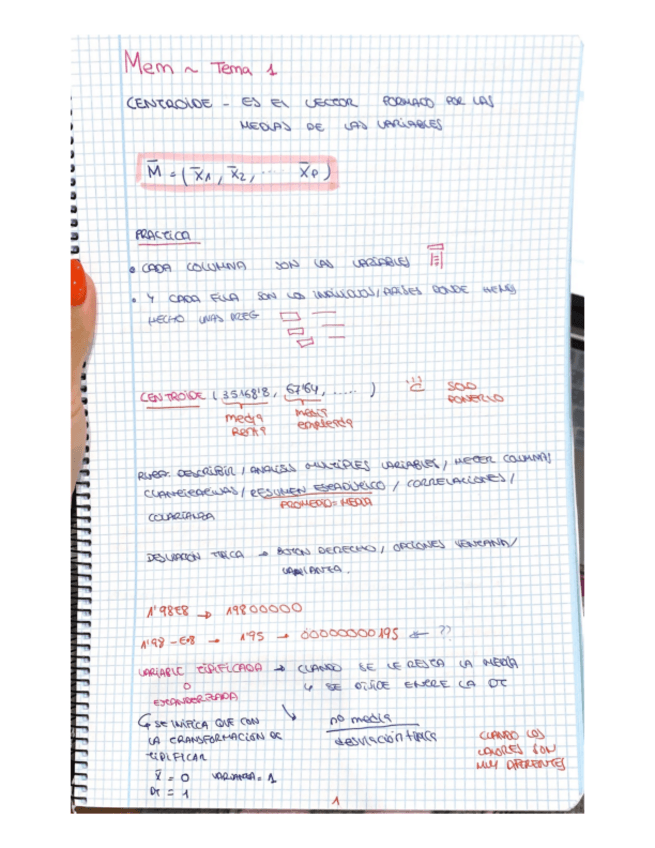 Mem ~ Tema 1
CENTROIDE - ES EL VECTOR FORMADO POR LAS
MEDIAS DE LAS VARIABLES
M̄ = (X̄1, X̄2, ..... X̄p)
PRACTICA
• CADA COLUMNA SON LAS VARIABLES
• Y CADA FILA SON LOS INDIVIDUOS/PAISES DONDE HEMOS
HECHO UNAS PREG
CENTROIDE (35168'8, 67'64, .....) SOLO
PONERLO
media media
RENTA empleada
DESCRIBIR / ANALISIS MULTIPLES VARIABLES / METER COLUMNAS
CUANTITATIVAS / RESUMEN ESTADISTICO / CORRELACIONES /
PROMEDIO = MEDIA
COVARIANZA
DESVIACION TIPICA → BOTON DERECHO / OPCIONES VENTANA /
VARIANZA.
1'98E8 → 19800000
1'98-E8 → 1'95 → 00000000195 ← ??
VARIABLE TIPIFICADA → CUANDO SE LE RESTA LA MEDIA
O Y SE DIVIDE ENTRE LA DT
ESTANDERIZADA
SE VERIFICA QUE CON
LA TRANSFORMACION DE
TIPIFICAR
nº media
desviación típica
CUANDO LOS
VALORES SON
MUY DIFERENTES
X̄ = 0 VARIANZA = 1
DT = 1
1